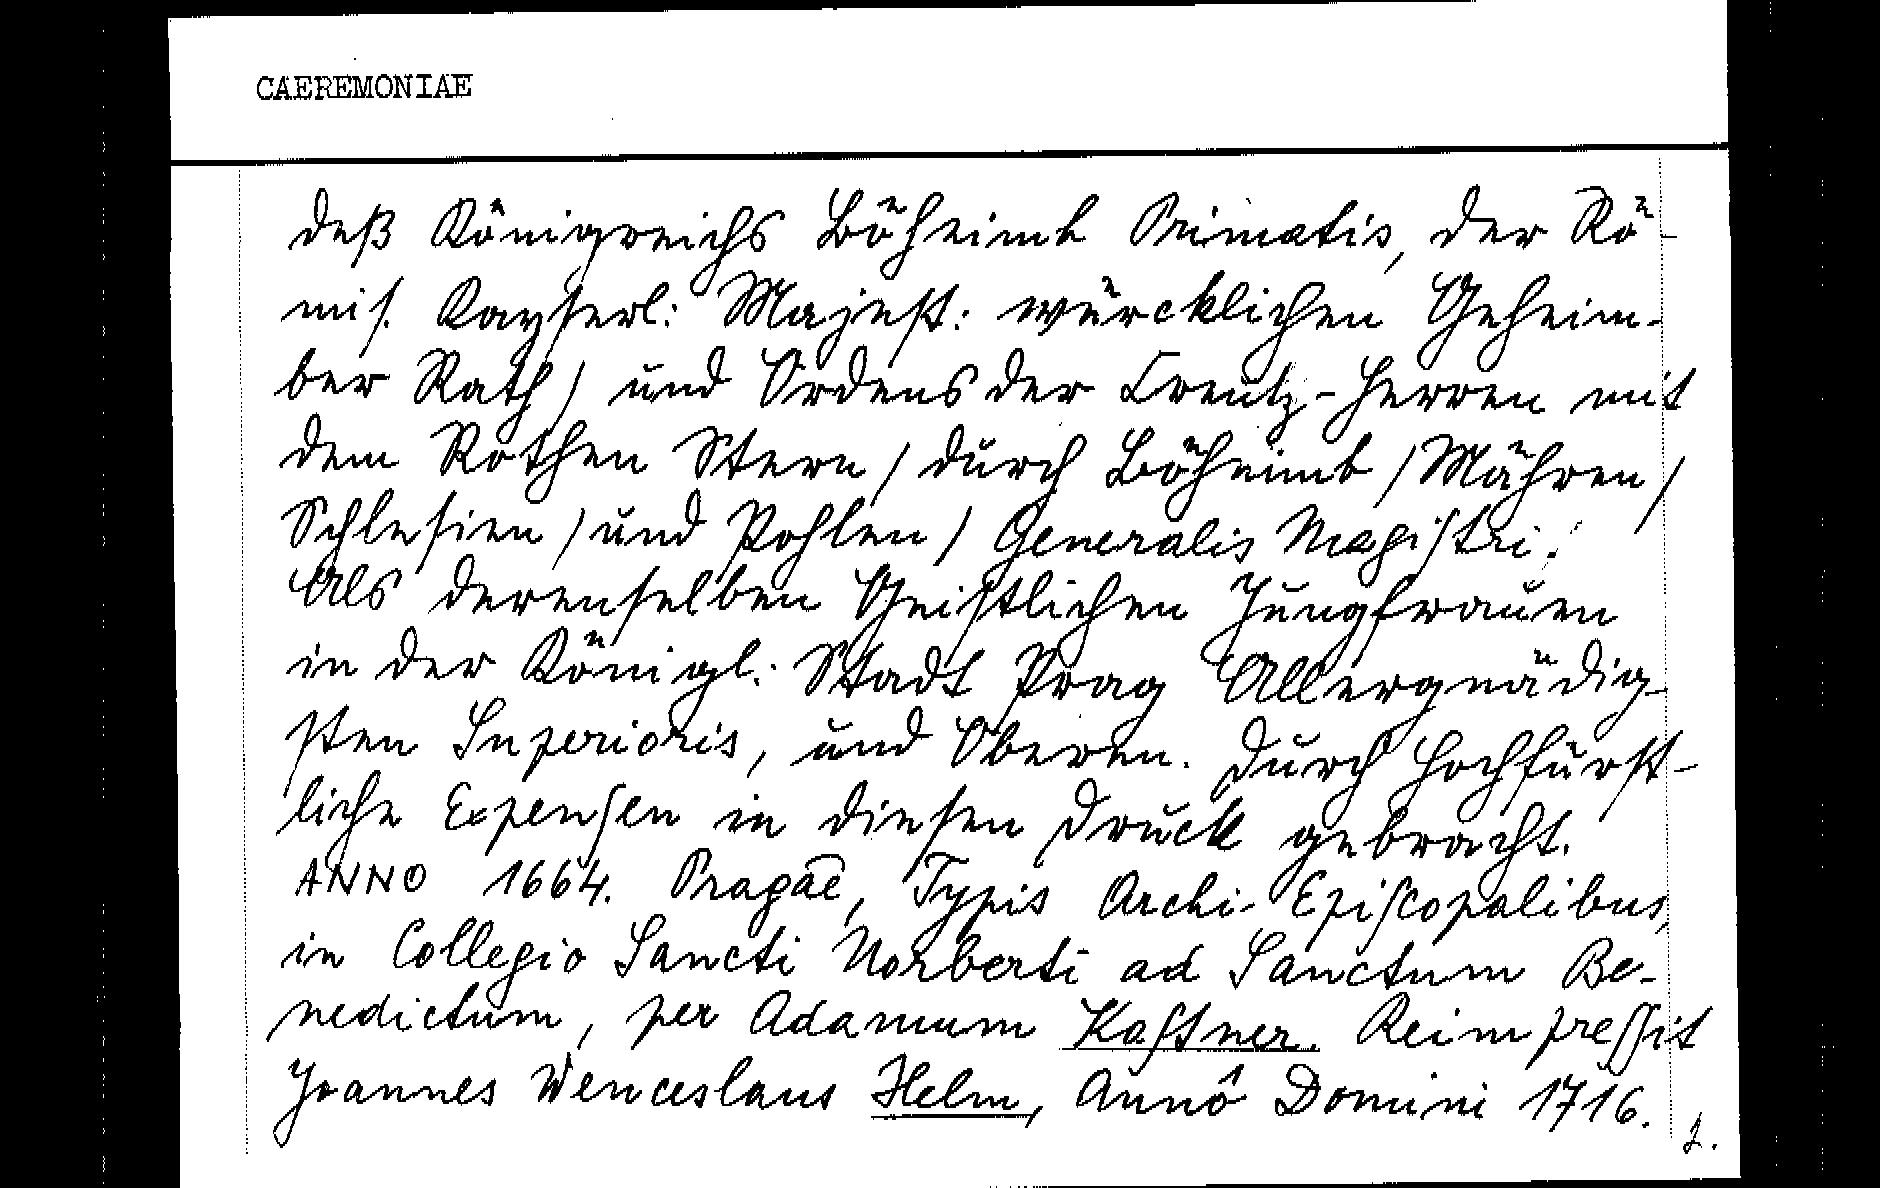 CAEREMONIAE
deß Königreichs Böheimb Primatis, der Rö-
mis. Kayserl: Majest: würcklichen Geheim-
ber Rath / und Ordens der Creutz-Herren mit
dem Rothen Stern / durch Böheimb / Mähren /
Schlesien / und Pohlen / Generalis Magistri.
Als derenselben Geistlichen Jungfrauen
in der Königl: Stadt Prag Allergnädig-
sten Superioris, und Oberen. Durch Hochfürst-
liche Expensen in diesen Druck gebracht.
ANNO 1664. Pragae, Typis Archi-Episcopalibus,
in Collegio Sancti Norberti ad Sanctum Be-
nedictum, per Adamum Kastner. Reimpressit
Joannes Wenceslaus Helm, Annô Domini 1716.